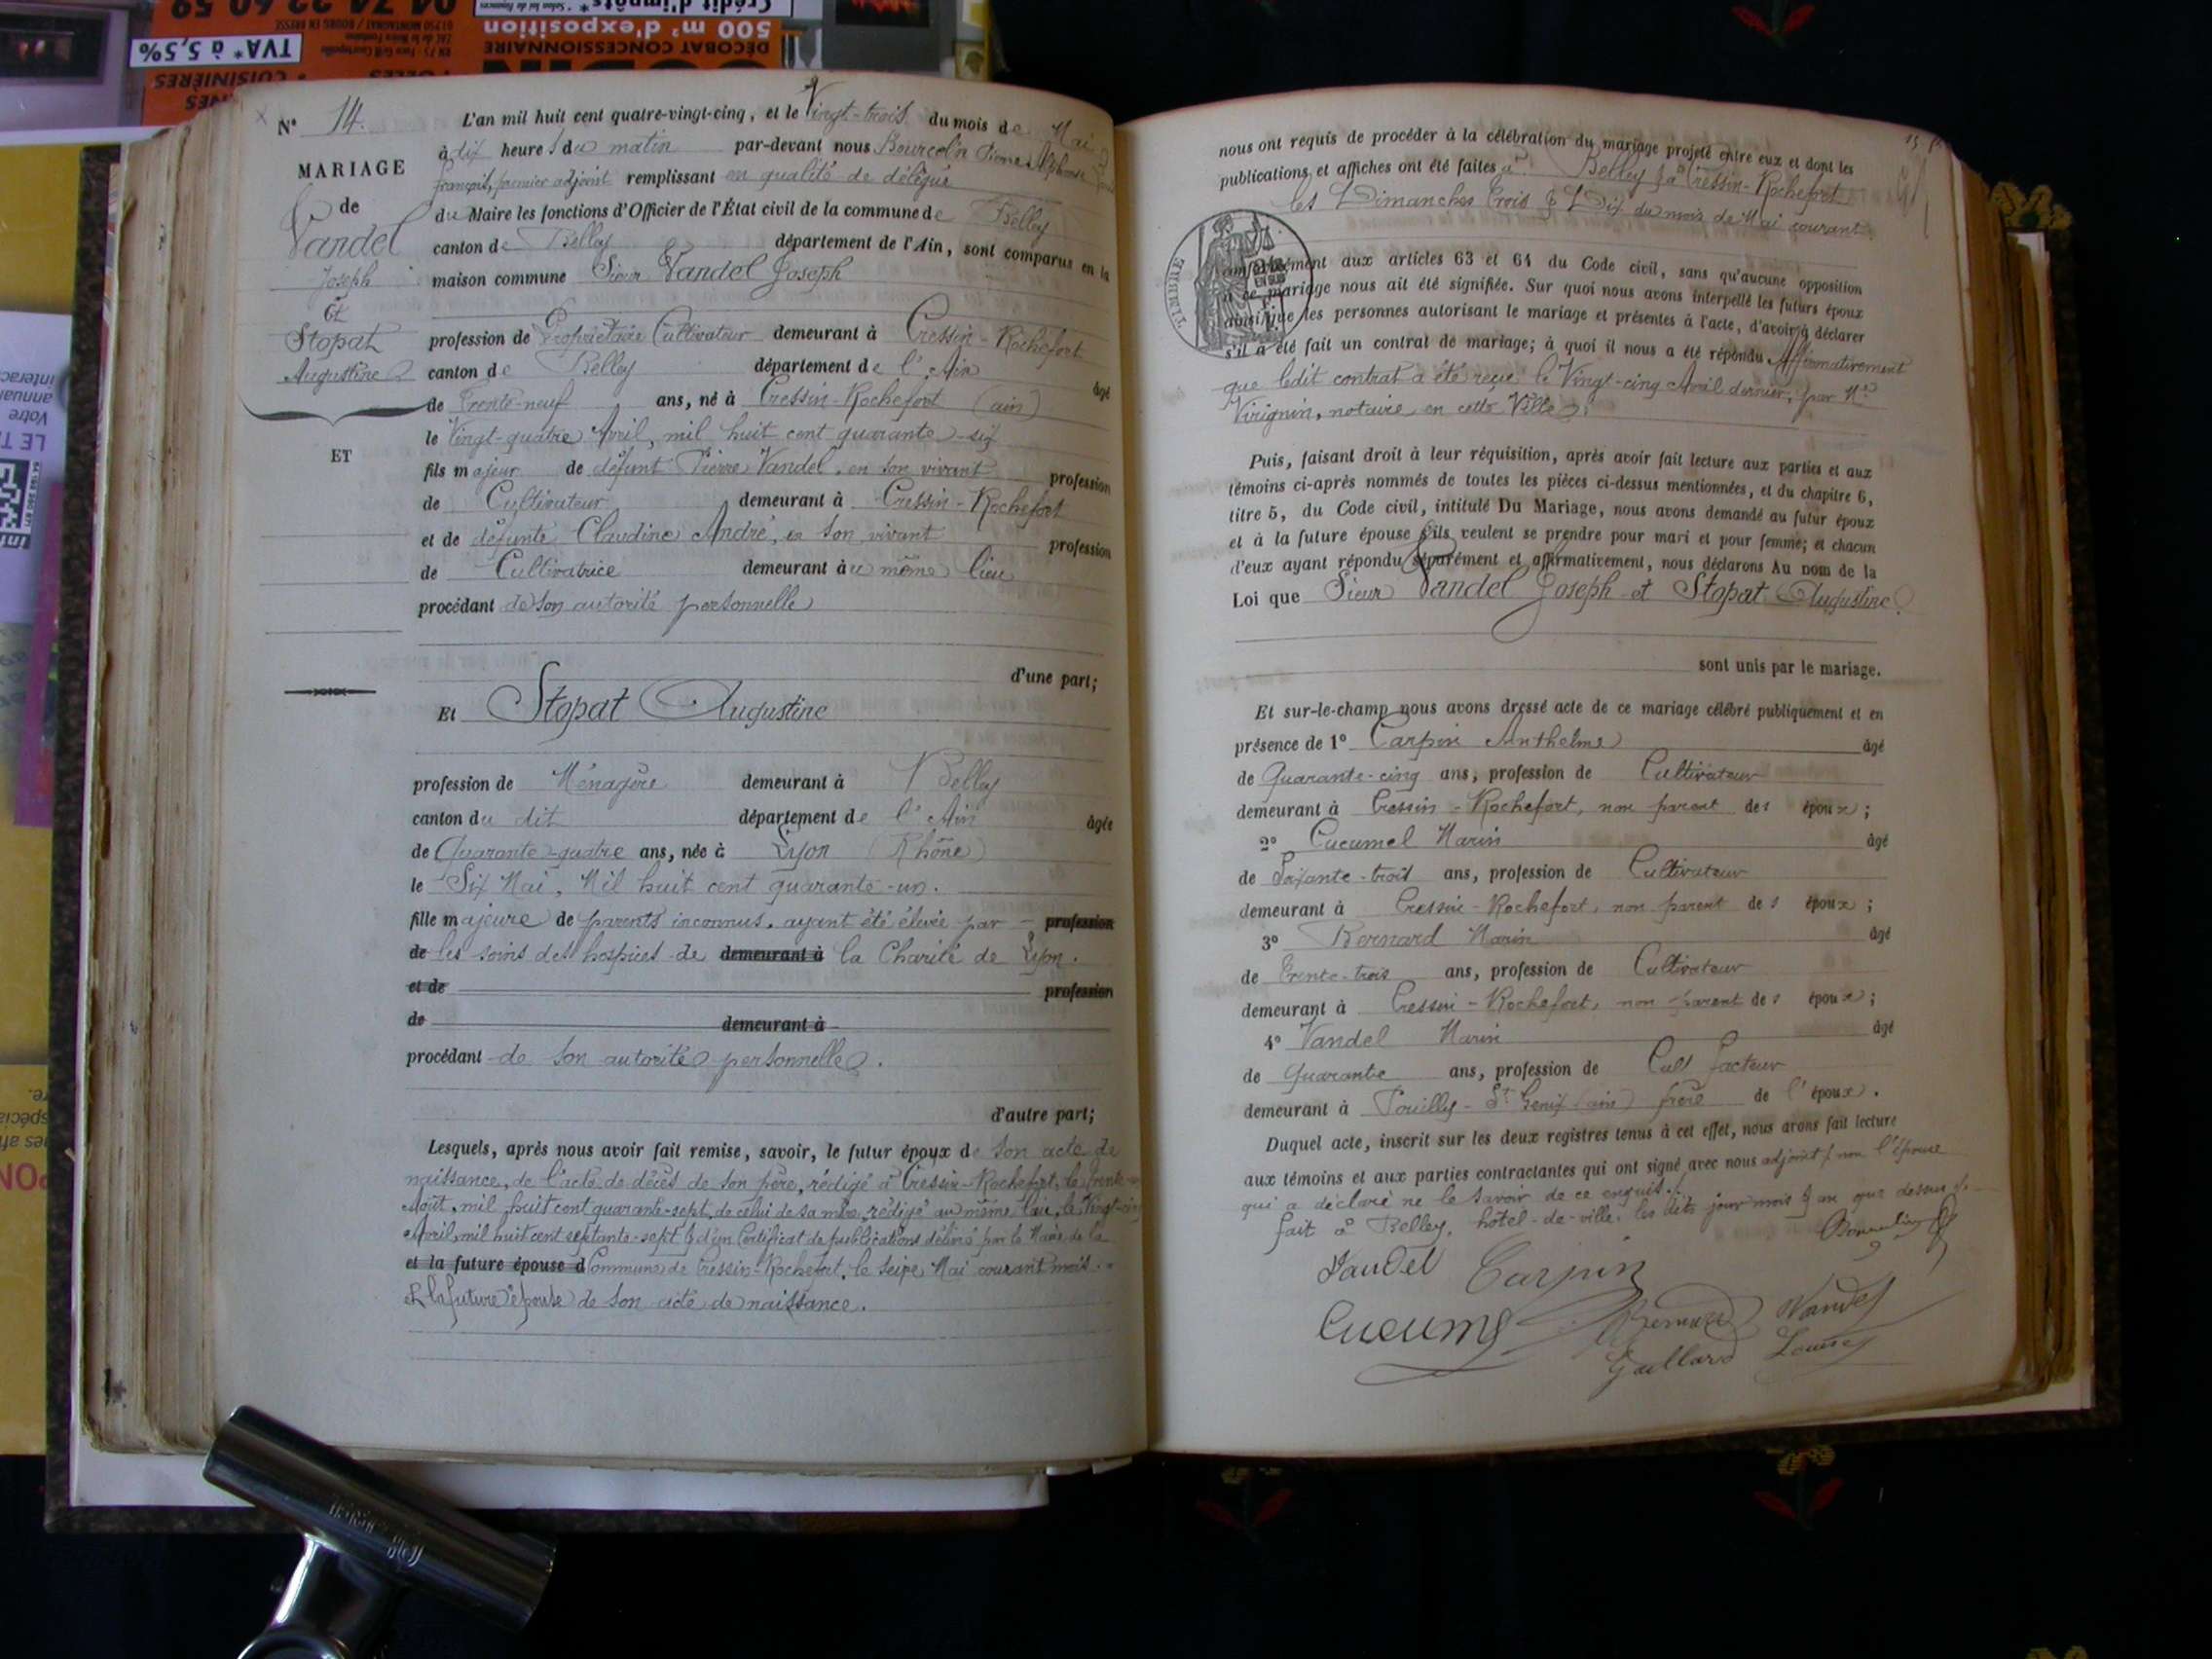 Crédit d'impôts*
500 m² d'exposition
DÉCOBAT CONCESSIONNAIRE
TVA à * 5,5%
CUISINIÈRES
N° 14.
MARIAGE
de
Vandel
Joseph
Et
Stopat
Augustine
ET
L'an mil huit cent quatre-vingt-cinq, et le Vingt-trois du mois de Mai
à dix heures du matin par-devant nous Pierre Alphonse
françois, premier adjoint remplissant en qualité de délégué
du Maire les fonctions d'Officier de l'État civil de la commune de Belley
canton de Belley département de l'Ain, sont comparus en la
maison commune Sieur Vandel Joseph
profession de Propriétaire Cultivateur demeurant à Cressin-Rochefort
canton de Belley département de l'Ain âgé
de Trente-neuf ans, né à Cressin-Rochefort (ain)
le Vingt-quatre Avril, mil huit cent quarante-six
fils majeur de défunt Pierre Vandel, en son vivant profession
de Cultivateur demeurant à Cressin-Rochefort
et de défunte Claudine André, en son vivant profession
de Cultivatrice demeurant au même lieu
procédant de son autorité personnelle
d'une part;
Et Stopat Augustine
profession de Ménagère demeurant à Belley
canton du dit département de l'Ain âgée
de Quarante-quatre ans, née à Lyon (Rhône)
le Six Mai, Mil huit cent quarante-un.
fille majeure de parents inconnus, ayant été élevée par profession
de les soins des hospices de demeurant à la Charité de Lyon.
et de profession
de demeurant à
procédant de son autorité personnelle.
d'autre part;
Lesquels, après nous avoir fait remise, savoir, le futur époux de son acte de
naissance, de l'acte de décès de son père, rédigé à Cressin-Rochefort, le trente
Août, mil huit cent quarante-sept, de celui de sa mère, rédigé au même lieu, le Vingt-cinq
Avril, mil huit cent septante-sept & d'un Certificat de publications délivré par le Maire de la
et la future épouse d Commune de Cressin-Rochefort, le seize Mai courant mois.
Et la future épouse de son acte de naissance.
nous ont requis de procéder à la célébration du mariage projeté entre eux et dont les
publications et affiches ont été faites à Belley & à Cressin-Rochefort
les Dimanches Trois & Dix du mois de Mai courant
TIMBRE
conformément aux articles 63 et 64 du Code civil, sans qu'aucune opposition
à ce mariage nous ait été signifiée. Sur quoi nous avons interpellé les futurs époux
ainsi que les personnes autorisant le mariage et présentes à l'acte, d'avoir à déclarer
s'il a été fait un contrat de mariage; à quoi il nous a été répondu Affirmativement
que ledit contrat a été reçu le Vingt-cinq Avril dernier, par Me
Virignin, notaire en cette Ville.
Puis, faisant droit à leur réquisition, après avoir fait lecture aux parties et aux
témoins ci-après nommés de toutes les pièces ci-dessus mentionnées, et du chapitre 6,
titre 5, du Code civil, intitulé Du Mariage, nous avons demandé au futur époux
et à la future épouse s'ils veulent se prendre pour mari et pour femme; et chacun
d'eux ayant répondu séparément et affirmativement, nous déclarons Au nom de la
Loi que Sieur Vandel Joseph et Stopat Augustine
sont unis par le mariage.
Et sur-le-champ nous avons dressé acte de ce mariage célébré publiquement et en
présence de 1° Carpin Anthelme âgé
de Quarante-cinq ans, profession de Cultivateur
demeurant à Cressin-Rochefort, non parent des époux;
2° Cucumel Marin âgé
de Soixante-trois ans, profession de Cultivateur
demeurant à Cressin-Rochefort, non parent des époux;
3° Bernard Marin âgé
de Trente-trois ans, profession de Cultivateur
demeurant à Cressin-Rochefort, non parent des époux;
4° Vandel Marin âgé
de Quarante ans, profession de facteur
demeurant à Pouilly-St Genix (ain) frère de l'époux.
Duquel acte, inscrit sur les deux registres tenus à cet effet, nous avons fait lecture
aux témoins et aux parties contractantes qui ont signé avec nous adjoint, non l'épouse
qui a déclaré ne le savoir de ce enquis.
fait à Belley, hôtel-de-ville, les dits jour mois & an que dessus.
Vandel Carpin
Cucumel Bernard Vandel
Gaillard